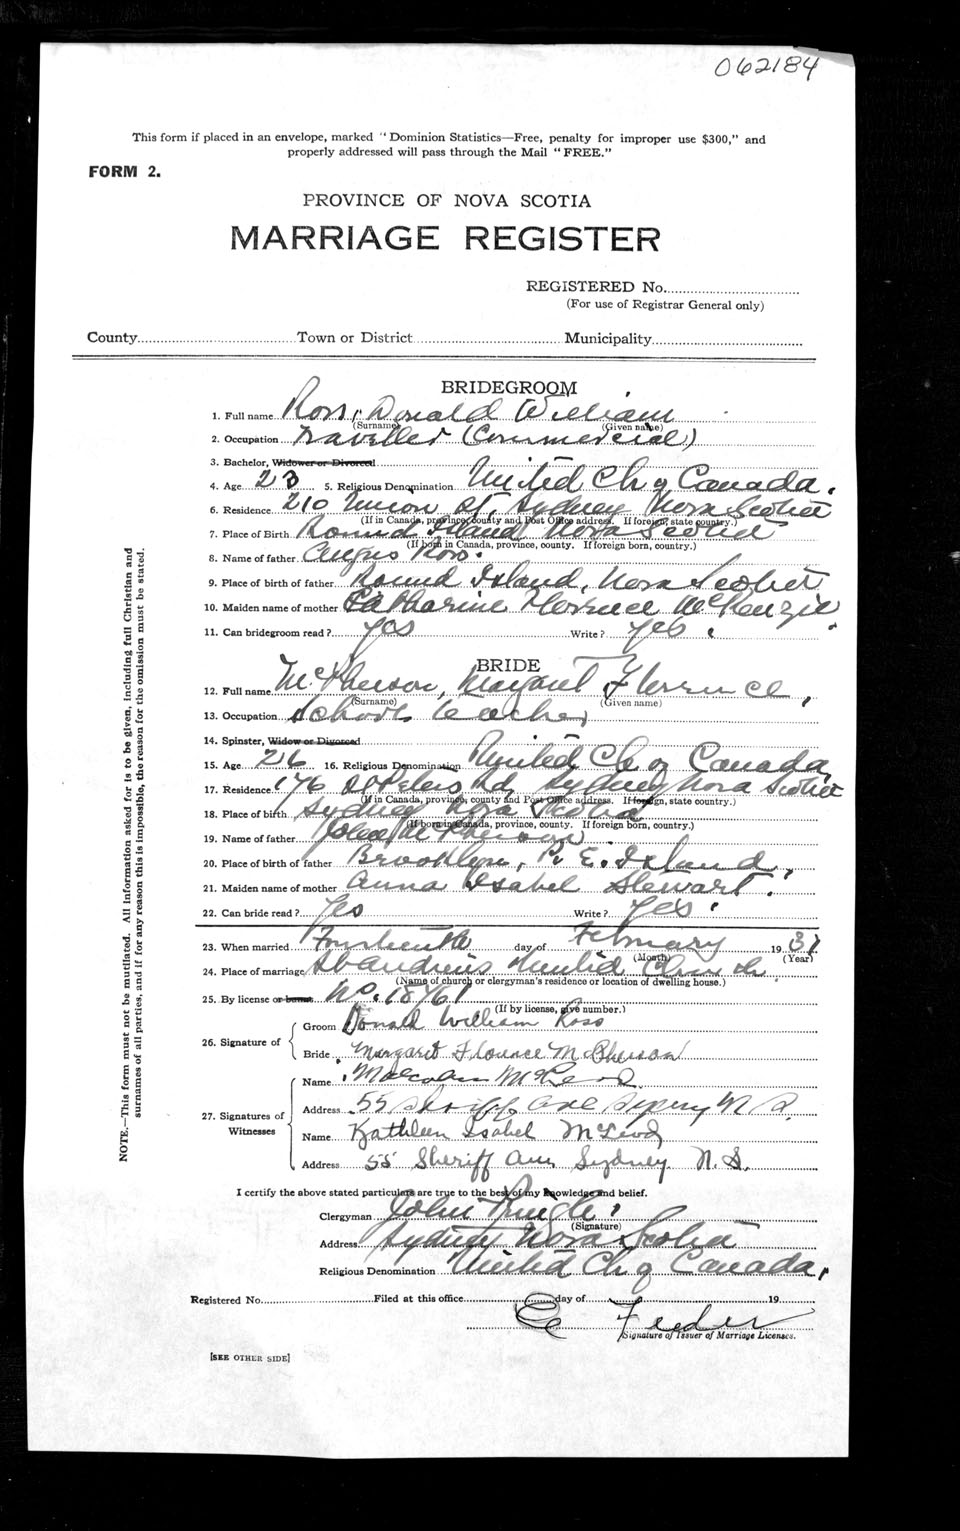 062184
This form if placed in an envelope, marked "Dominion Statistics—Free, penalty for improper use $300," and
properly addressed will pass through the Mail "FREE."
FORM 2.
PROVINCE OF NOVA SCOTIA
MARRIAGE REGISTER
REGISTERED No.
(For use of Registrar General only)
County Town or District Municipality
BRIDEGROOM
1. Full name Ross, Donald William
(Surname) (Given name)
2. Occupation Traveller (Commercial)
3. Bachelor, Widower or Divorced
4. Age 23 5. Religious Denomination United Ch of Canada.
6. Residence 210 Union St, Sydney Nova Scotia
(If in Canada, province, county and Post Office address. If foreign, state country.)
7. Place of Birth Round Island Nova Scotia
(If born in Canada, province, county. If foreign born, country.)
8. Name of father Angus Ross.
9. Place of birth of father Round Island, Nova Scotia
10. Maiden name of mother Catharine Florence McKenzie.
11. Can bridegroom read? yes Write? yes.
BRIDE
12. Full name McPherson, Margaret Florence,
(Surname) (Given name)
13. Occupation School teacher
14. Spinster, Widow or Divorced
15. Age 26 16. Religious Denomination United Ch of Canada,
17. Residence 176 St Peters Rd, Sydney Nova Scotia
(If in Canada, province, county and Post Office address. If foreign, state country.)
18. Place of birth Sydney Nova Scotia
(If born in Canada, province, county. If foreign born, country.)
19. Name of father John McPherson
20. Place of birth of father Brooklyn, P. E. Island,
21. Maiden name of mother Anna Isabel Stewart.
22. Can bride read? Yes Write? Yes.
23. When married Fourteenth day of February 1931
(Month) (Year)
24. Place of marriage St Andrews United Church
(Name of church or clergyman's residence or location of dwelling house.)
25. By license or banns No. 18461
(If by license, give number.)
26. Signature of
Groom Donald William Ross
Bride Margaret Florence McPherson
27. Signatures of Witnesses
Name Malcolm McLeod
Address 55 Sheriff Ave Sydney N S.
Name Kathleen Isabel McLeod
Address 55 Sheriff Ave Sydney. N. S.
I certify the above stated particulars are true to the best of my knowledge and belief.
Clergyman John Pringle.
(Signature)
Address Sydney Nova Scotia
Religious Denomination United Ch of Canada,
Registered No. Filed at this office day of 19
Signature of Issuer of Marriage Licenses.
[SEE OTHER SIDE]
NOTE.—This form must not be mutilated. All information asked for is to be given, including full Christian and
surnames of all parties, and if for any reason this is impossible, the reason for the omission must be stated.